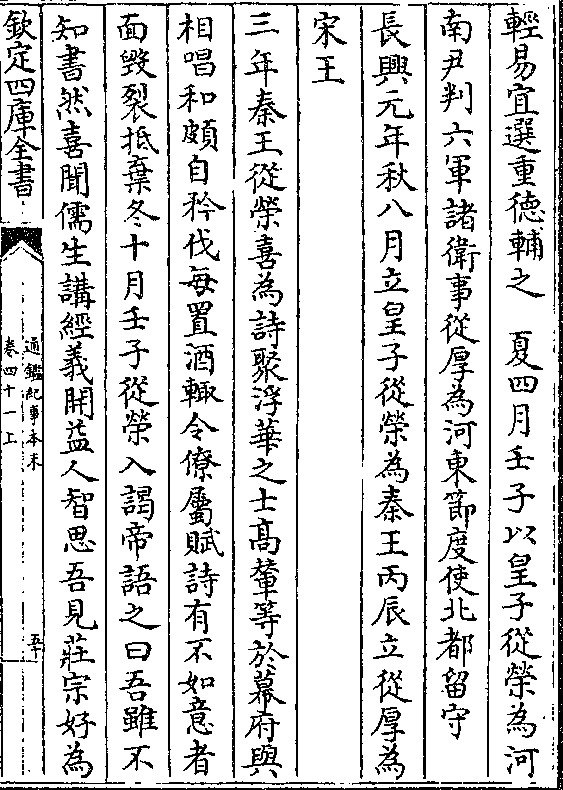 輕易宜選重德輔之　夏四月壬子以皇子從榮為河
南尹判六軍諸衛事從厚為河東節度使北都留守
長興元年秋八月立皇子從榮為秦王丙辰立從厚為
宋王
三年秦王從榮喜為詩聚浮華之士髙輦等於幕府與
相唱和頗自矜伐每置酒輙令僚屬賦詩有不如意者
面毀裂抵棄冬十月壬子從榮入謁帝語之曰吾雖不
知書然喜聞儒生講經義開益人智思吾見莊宗好為
欽定四庫全書
通鑑紀事本末
卷四十一上
五十